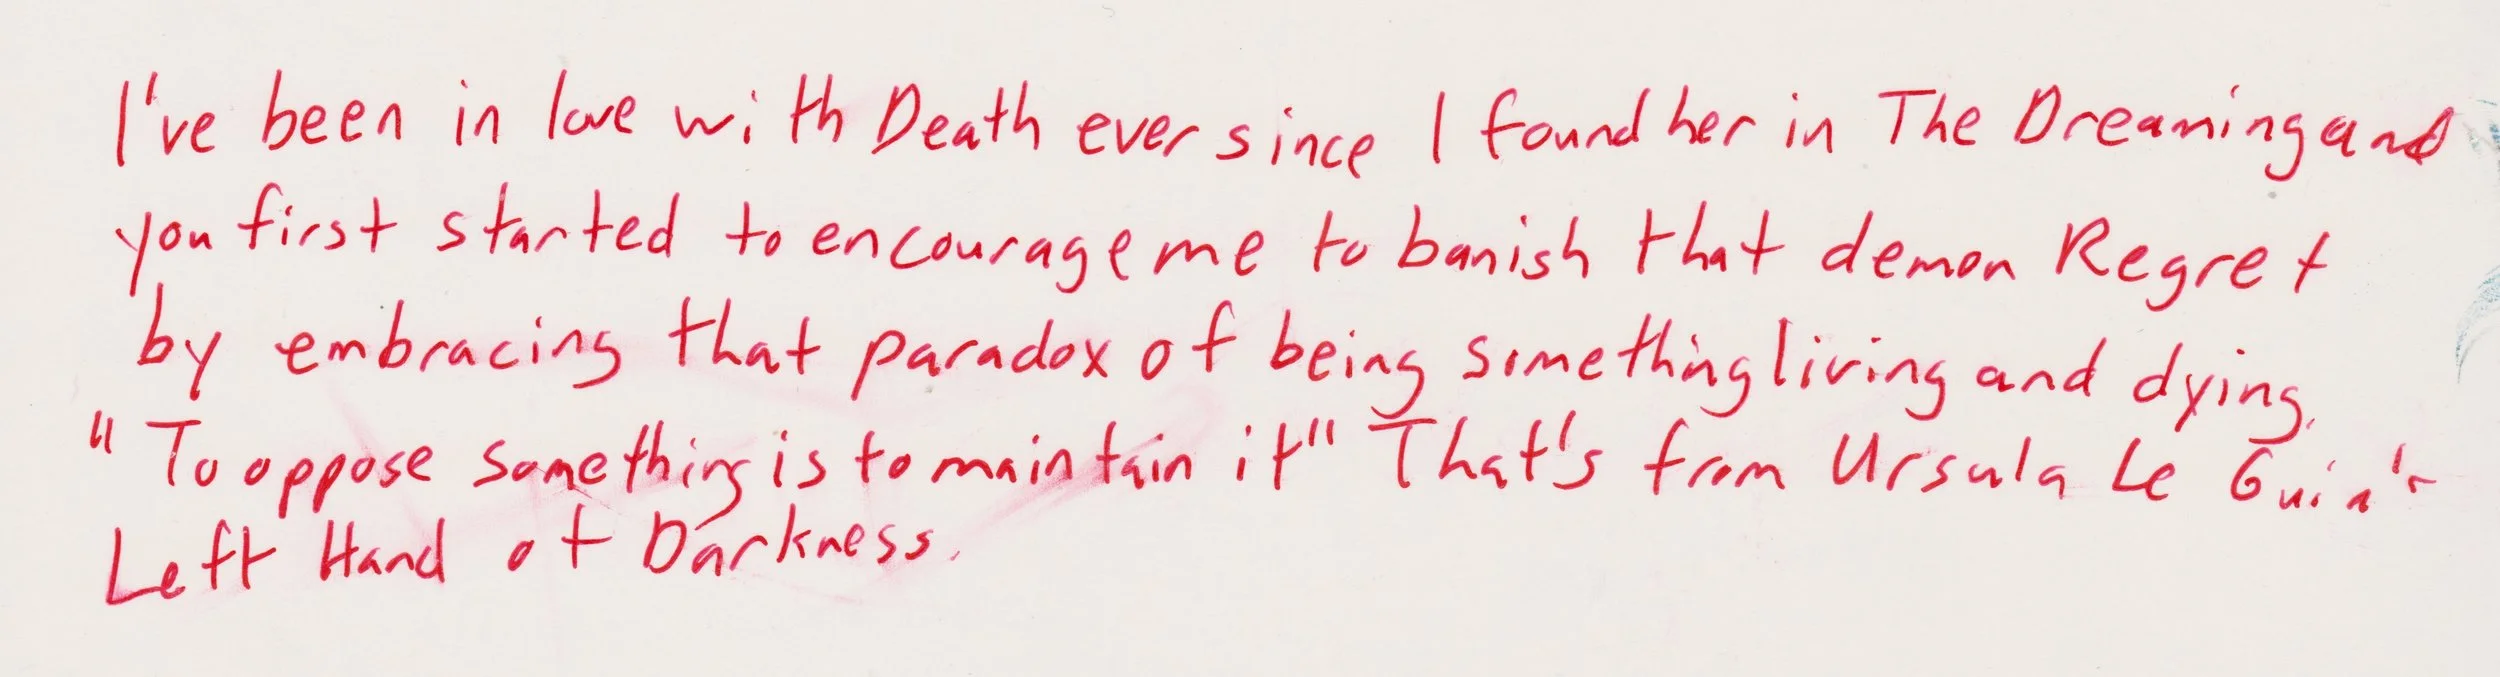 I've been in love with Death ever since I found her in The Dreaming and
you first started to encourage me to banish that demon Regret
by embracing that paradox of being something living and dying.
"To oppose something is to maintain it" That's from Ursula Le Guin's
Left Hand of Darkness.